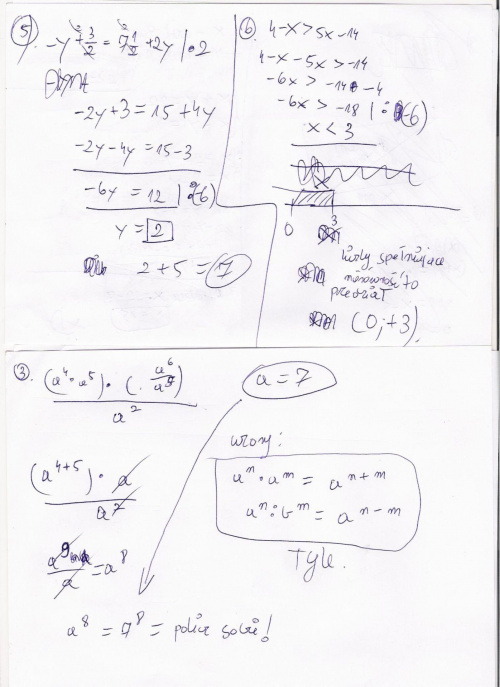 5.
-y + 3/2 = 7 1/2 + 2y | · 2
-2y + 3 = 15 + 4y
-2y - 4y = 15 - 3
-6y = 12 | : (-6)
y = 2
2 + 5 = 7
6. 4-x > 5x-14
4-x-5x > -14
-6x > -14-4
-6x > -18 | : (-6)
x < 3
0 3
liczby spełniające
nierówność to
przedział
(0; +3)
3. (a⁴ · a⁵) · (· a⁶/a⁵)
a²
a = 7
(a⁴⁺⁵) · a
a²
wzory:
aⁿ · aᵐ = aⁿ⁺ᵐ
aⁿ : bᵐ = aⁿ⁻ᵐ
a⁹/a = a⁸
Tyle.
a⁸ = 7⁸ = policz sobie!